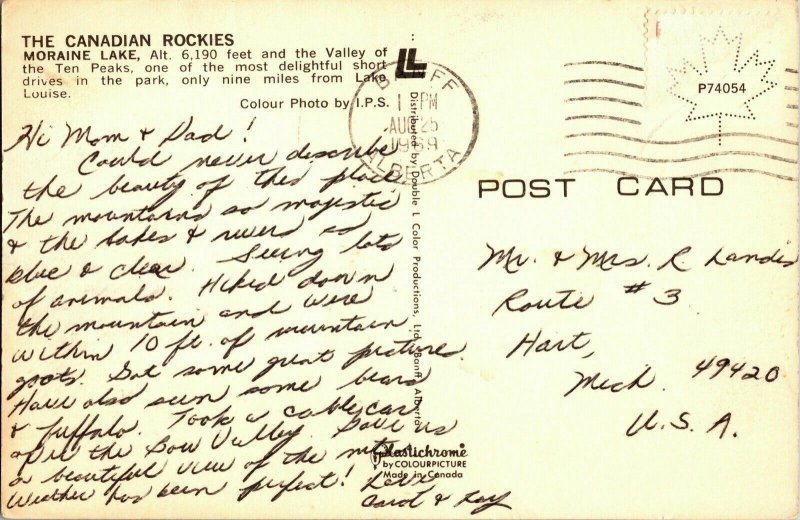 THE CANADIAN ROCKIES
MORAINE LAKE, Alt. 6,190 feet and the Valley of
the Ten Peaks, one of the most delightful short
drives in the park, only nine miles from Lake
Louise.
Colour Photo by I.P.S.
Hi Mom & Dad!
Could never describe
the beauty of this place
The mountains so majestic
& the lakes & rivers so
blue & clear. Seeing lots
of animals. Hiked down
the mountain and were
within 10 ft. of mountain
goats. Got some great pictures.
Have also seen some bears
& buffalo. Took a cable car
over the Bow Valley. Gave us
a beautiful view of the mts.
Weather has been perfect! Love
Carol & Ray
LL
Distributed by Double L Color Productions, Ltd. Banff Alberta
Plastichrome
by COLOURPICTURE
Made in Canada
BANFF
1 PM
AUG 25
1969
ALBERTA
P74054
POST CARD
Mr. & Mrs. R Landis
Route #3
Hart,
Mich. 49420
U.S.A.